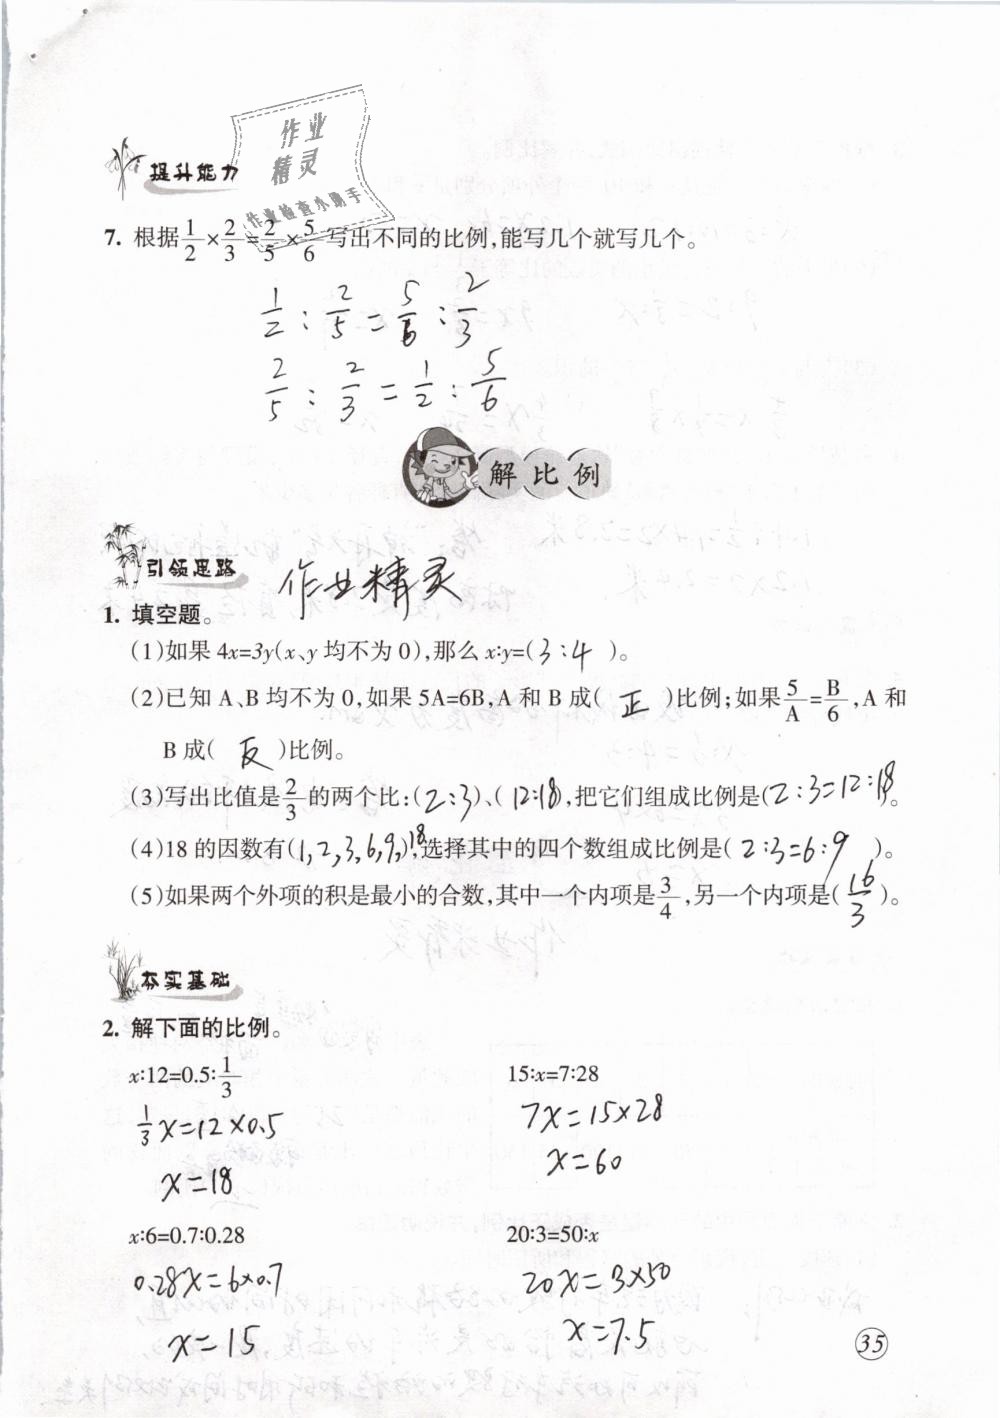 作业
精灵
作业检查小助手
提升能力
7. 根据1/2×2/3=2/5×5/6写出不同的比例,能写几个就写几个。
1/2:2/5=5/6:2/3
2/5:2/3=1/2:5/6
解比例
引领思路
作业精灵
1. 填空题。
(1)如果 4x=3y(x、y 均不为 0),那么 x:y=(3:4)。
(2)已知 A、B 均不为 0,如果 5A=6B,A 和 B 成(正)比例;如果5/A=B/6,A 和
B 成(反)比例。
(3)写出比值是2/3的两个比:(2:3)、(12:18),把它们组成比例是(2:3=12:18)。
(4)18 的因数有(1,2,3,6,9,18),选择其中的四个数组成比例是(2:3=6:9)。
(5)如果两个外项的积是最小的合数,其中一个内项是3/4,另一个内项是(16/3)。
夯实基础
2. 解下面的比例。
x:12=0.5:1/3
15:x=7:28
1/3x=12×0.5
7x=15×28
x=18
x=60
x:6=0.7:0.28
20:3=50:x
0.28x=6×0.7
20x=3×50
x=15
x=7.5
35